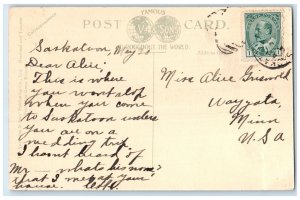 FAMOUS
POST CARD.
THROUGHOUT THE WORLD.
Saskatoon, May 20
Dear Alice:
This is where
you wont stop
when you come
to Saskatoon unless
you are on a
wedding trip.
I havnt heard of
My whats his name?
that I met at your
house.
Miss Alice Griswold
Wayzata
Minn
U.S.A